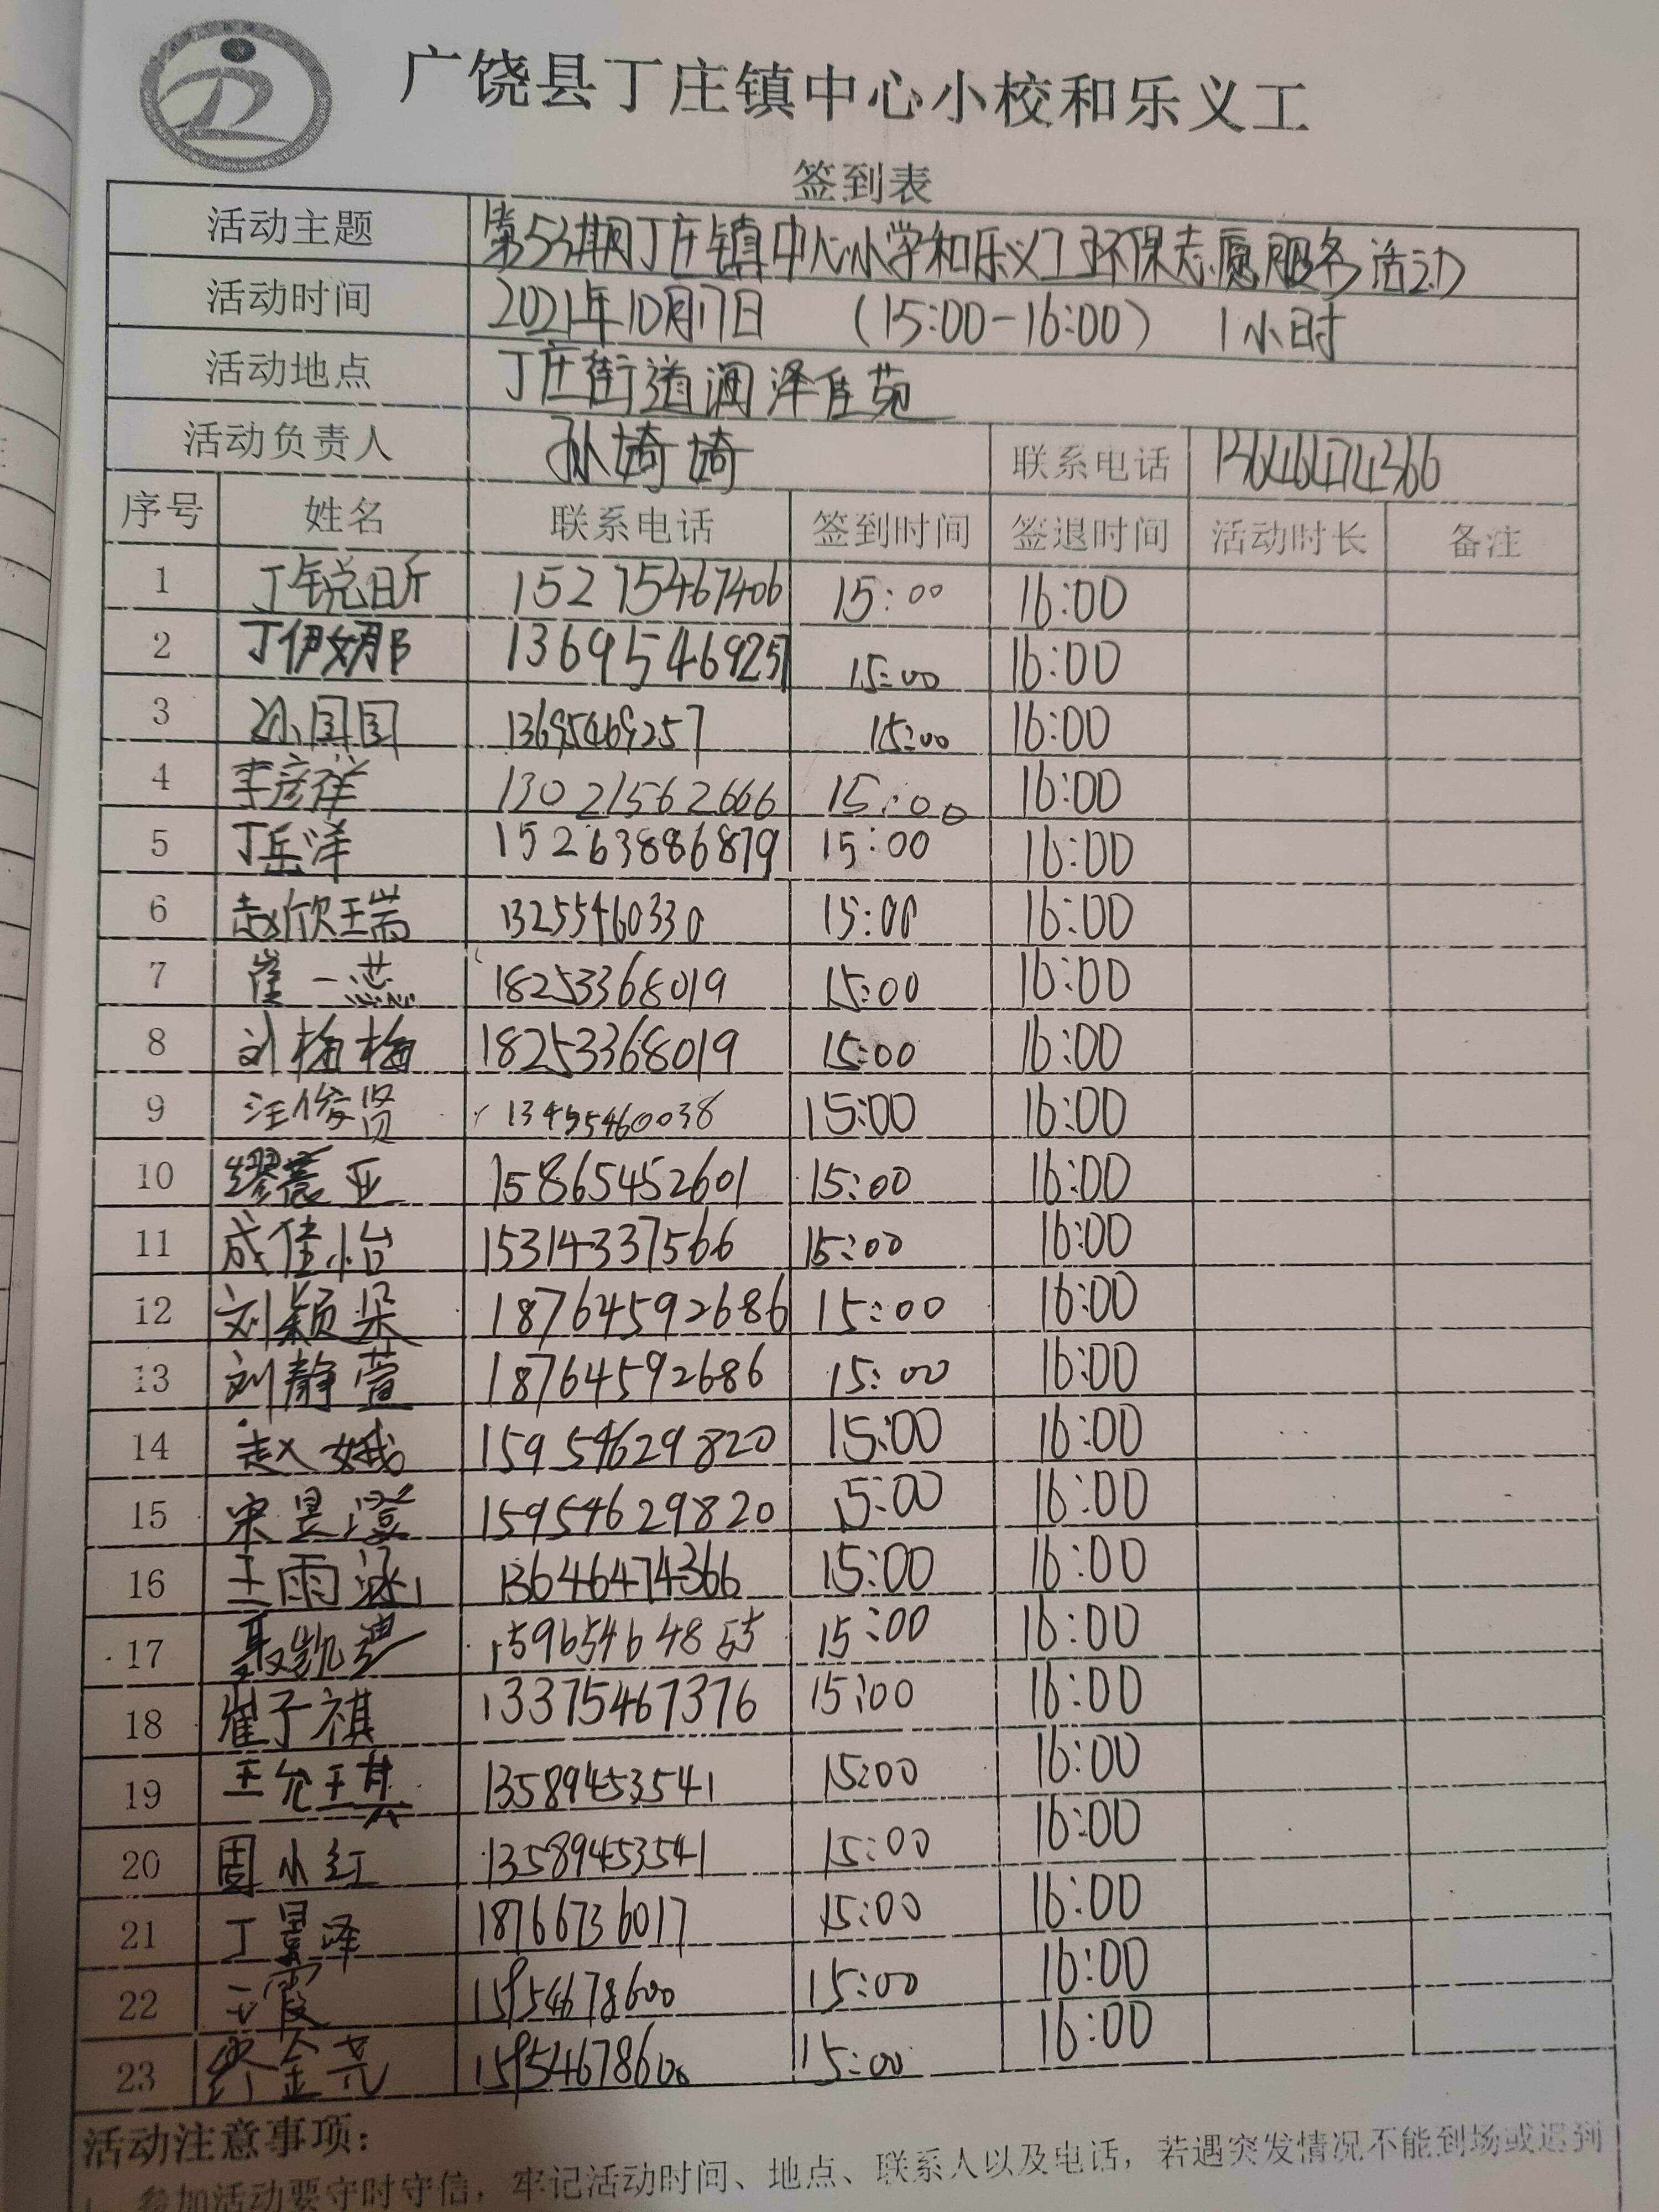 广饶县丁庄镇中心小校和乐义工
签到表
活动主题 第53期丁庄镇中心小学和乐义工环保志愿服务活动
活动时间 2021年10月17日 （15:00-16:00） 1小时
活动地点 丁庄街道润泽佳苑
活动负责人 孙婍婍 联系电话 13646474366
序号 姓名 联系电话 签到时间 签退时间 活动时长 备注
1 丁锐昕 15275467406 15:00 16:00
2 丁伊娜 13695469257 15:00 16:00
3 孙国国 13695469257 15:00 16:00
4 李彦祥 13021562666 15:00 16:00
5 丁岳洋 15263886879 15:00 16:00
6 赵欣瑞 13255460330 15:00 16:00
7 崔一蕊 18253368019 15:00 16:00
8 刘梅梅 18253368019 15:00 16:00
9 汪俊贤 13455460038 15:00 16:00
10 缪 亚 15865452601 15:00 16:00
11 成佳怡 15314337566 15:00 16:00
12 刘颖朵 18764592686 15:00 16:00
13 刘静萱 18764592686 15:00 16:00
14 赵娥 15954629820 15:00 16:00
15 宋昱澄 15954629820 15:00 16:00
16 王雨涵 13646474366 15:00 16:00
17 聂凯 15965464855 15:00 16:00
18 崔子祺 13375467376 15:00 16:00
19 王允琪 13589453541 15:00 16:00
20 周小红 13589453541 15:00 16:00
21 丁昱泽 18766736017 15:00 16:00
22 王霞 15954678600 15:00 16:00
23 金尧 15954678600 15:00 16:00
活动注意事项：
1、参加活动要守时守信，牢记活动时间、地点、联系人以及电话，若遇突发情况不能到场或迟到